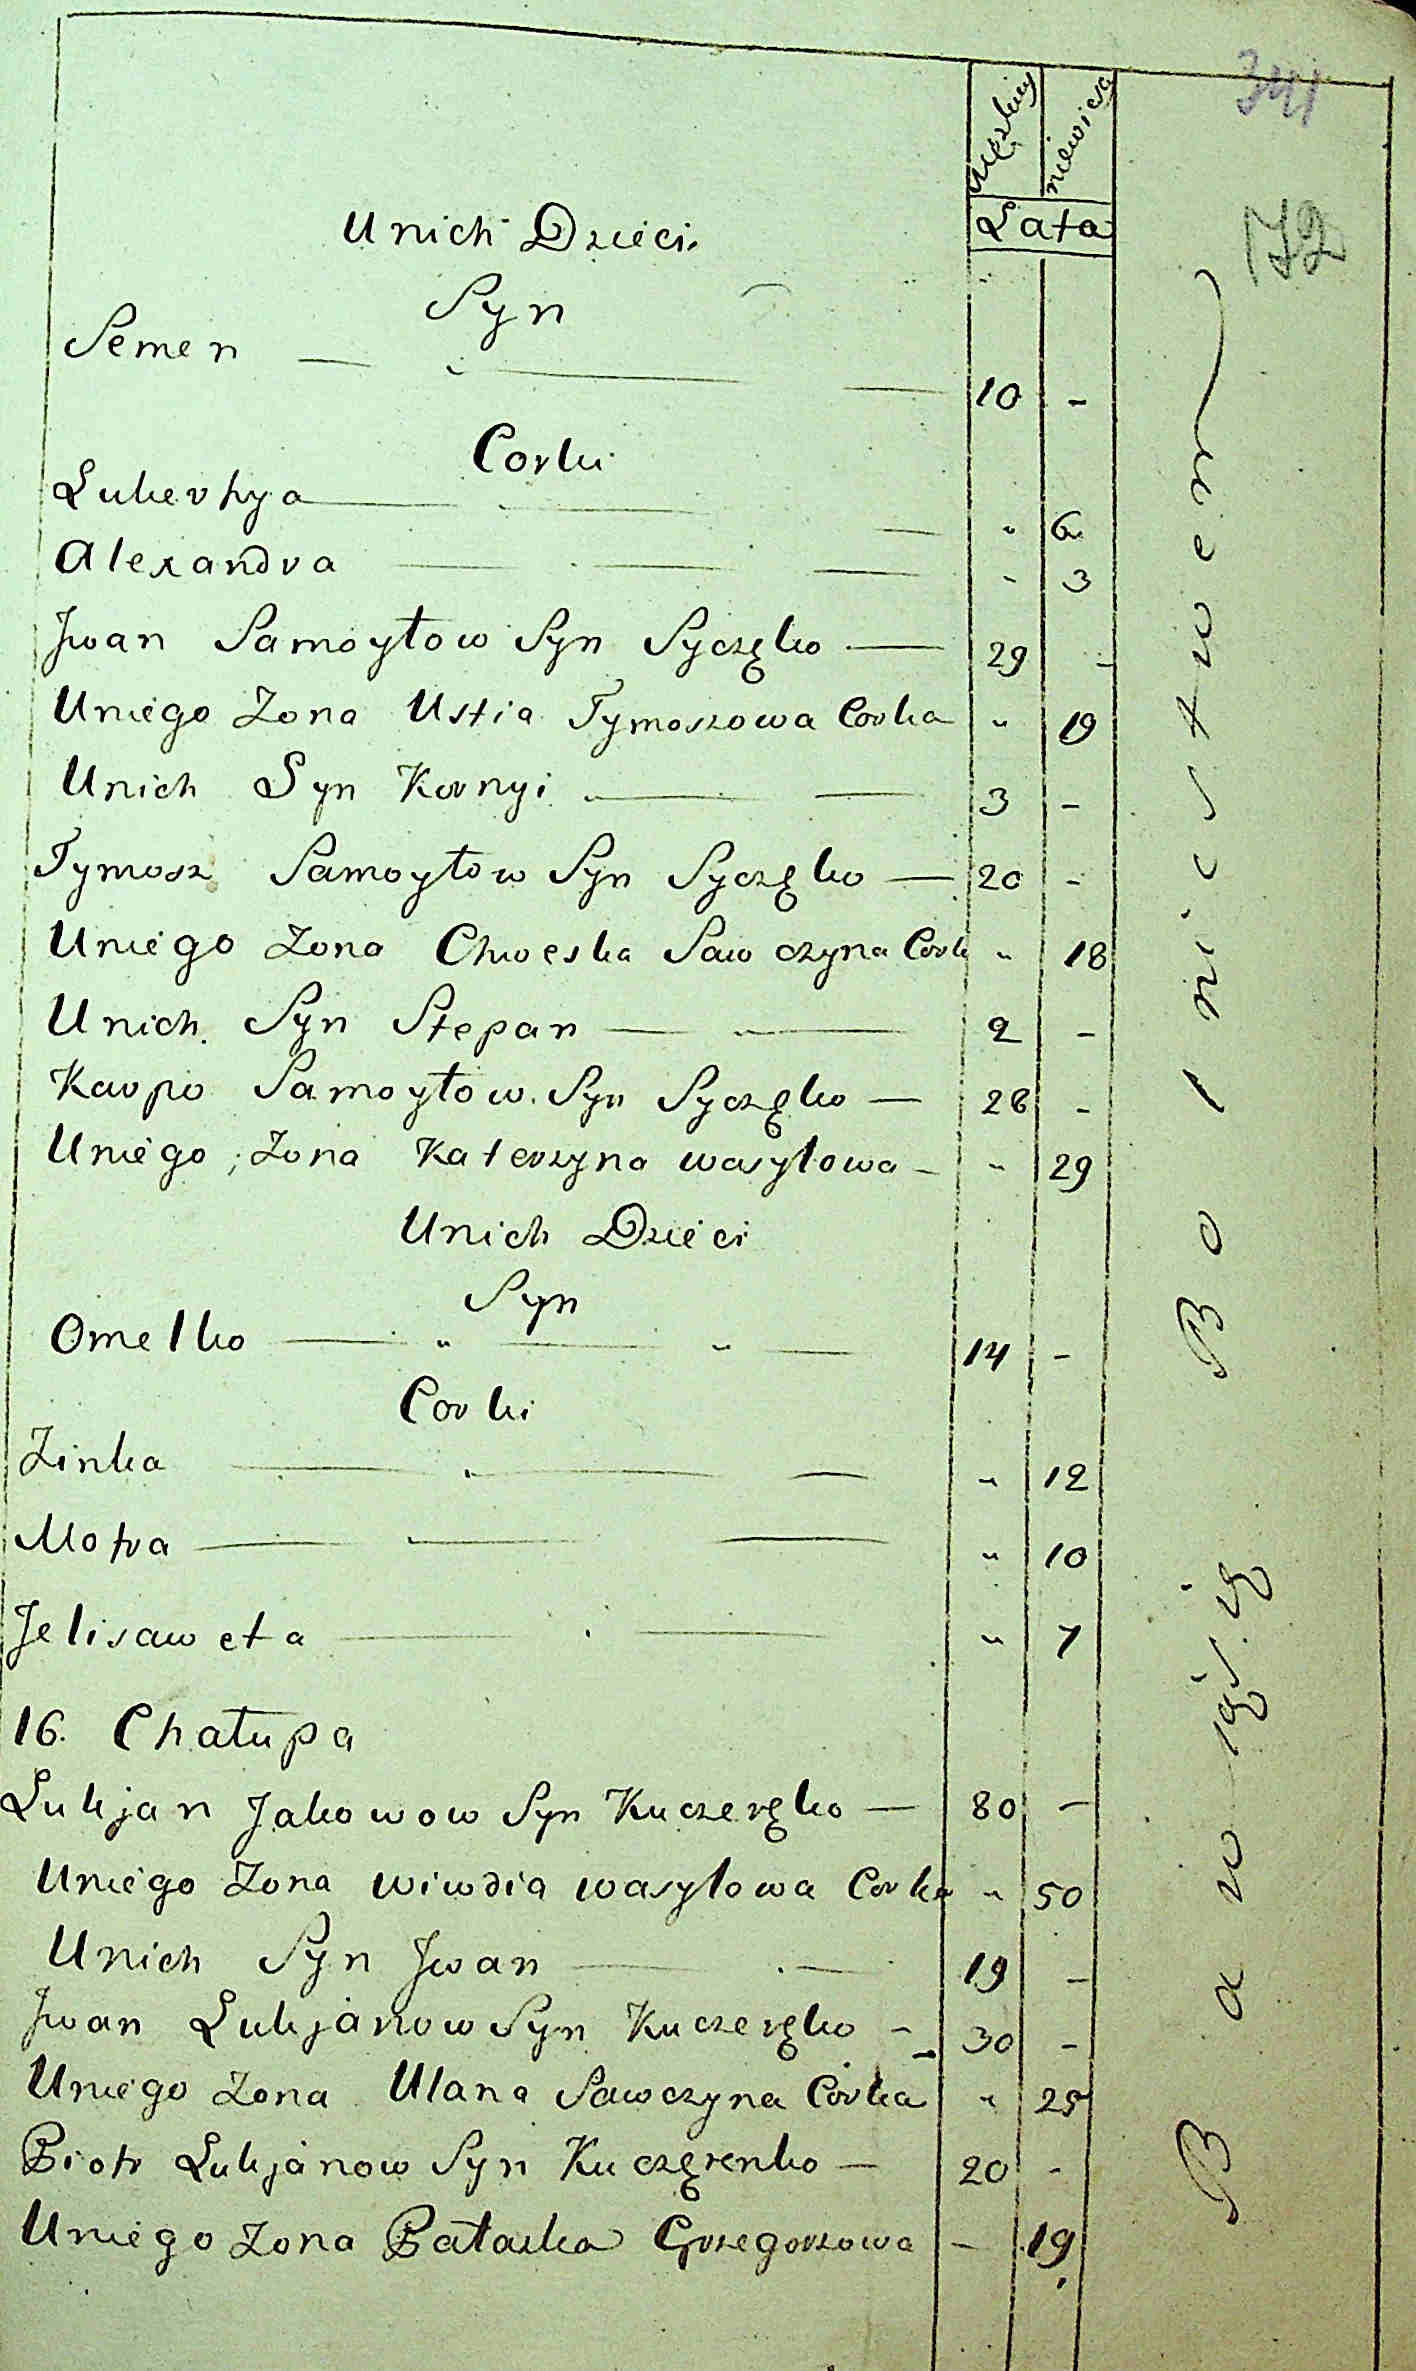 341
172
Męzkiey niewiesci
Lata
Unich Dzieci.
Syn
Semen — " — — 10 -
Corki
Lukerhya — — — " 6
Alexandra — — — " 3
Jwan Samoyłow Syn Syczęko — 29 -
Uniego Zona Ustia Tymoszowa Corka " 19
Unich Syn Kornyi — — 3 -
Tymosz Samoyłow Syn Syczęko — 20 -
Uniego Zona Chweska Sawczyna Cork " 18
Unich Syn Stepan — — 2 -
Karpo Samoyłow Syn Syczęko — 28 -
Uniego Zona Katerzyna wasylowa - " 29
Unich Dzieci
Syn
Omelko — " — " — 14 -
Corki
Zinka — " — — " 12
Motra — — — " 10
Jelisaweta — — " 7
16. Chałupa
Lukjan Jakowow Syn Kuczeręko — 80 -
Uniego Zona wiwdia wasylowa Corka " 50
Unich Syn Jwan — — 19 -
Jwan Lukjanow Syn Kuczeręko - 30 -
Uniego Zona Ulana Sawczyna Corka " 25
Piotr Lukjanow Syn Kuczęrenko — 20 -
Uniego Zona Pałaska Grzegorzowa - 19
Bawiąś. ię Rolnictwem